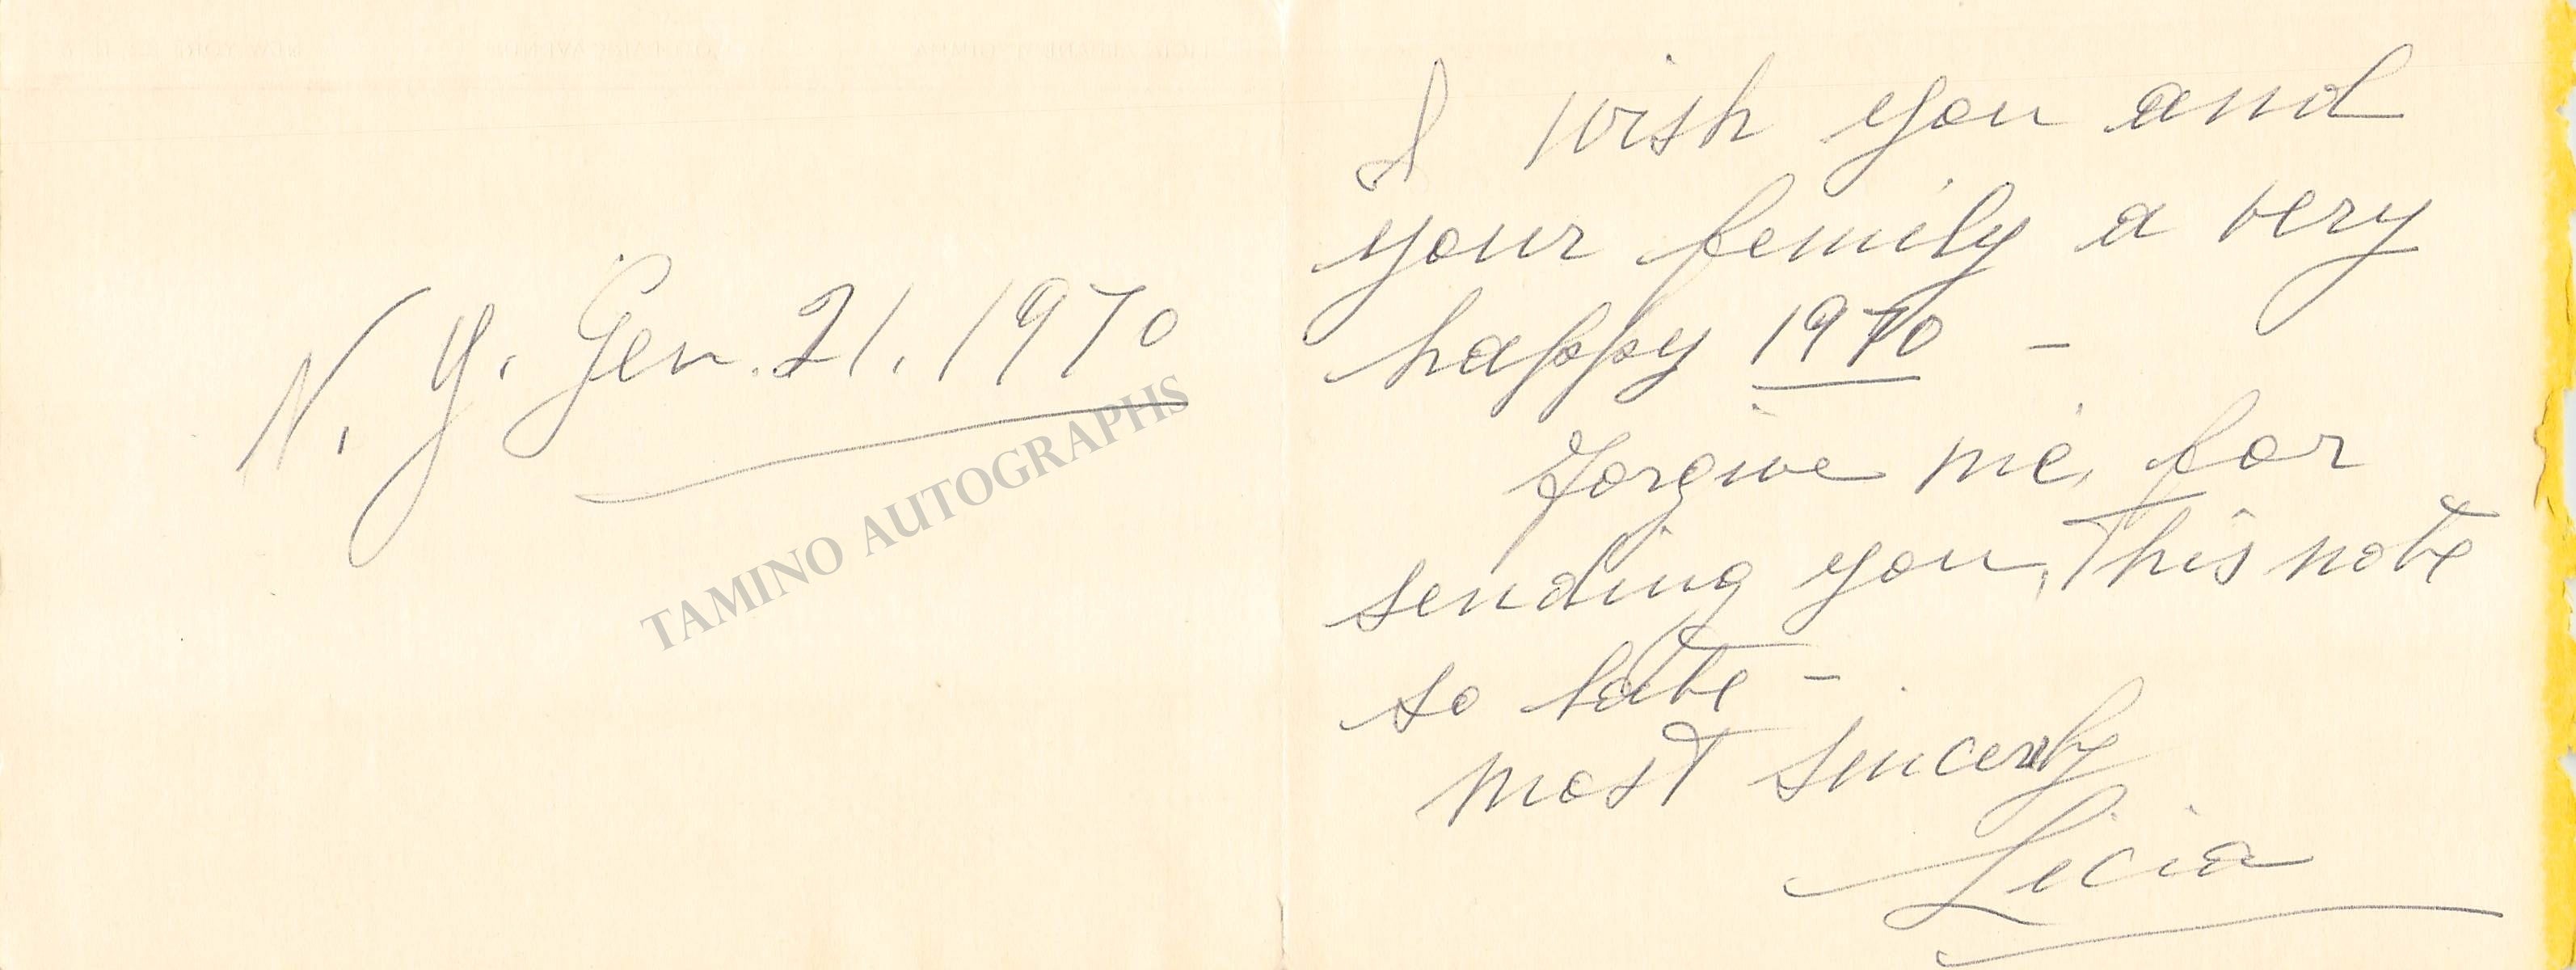 N. Y. Gen. 21. 1970
TAMINO AUTOGRAPHS
I wish you and
your family a very
happy 1970 -
Forgive me, for
sending you, this note
so late -
most sincerely
Licia